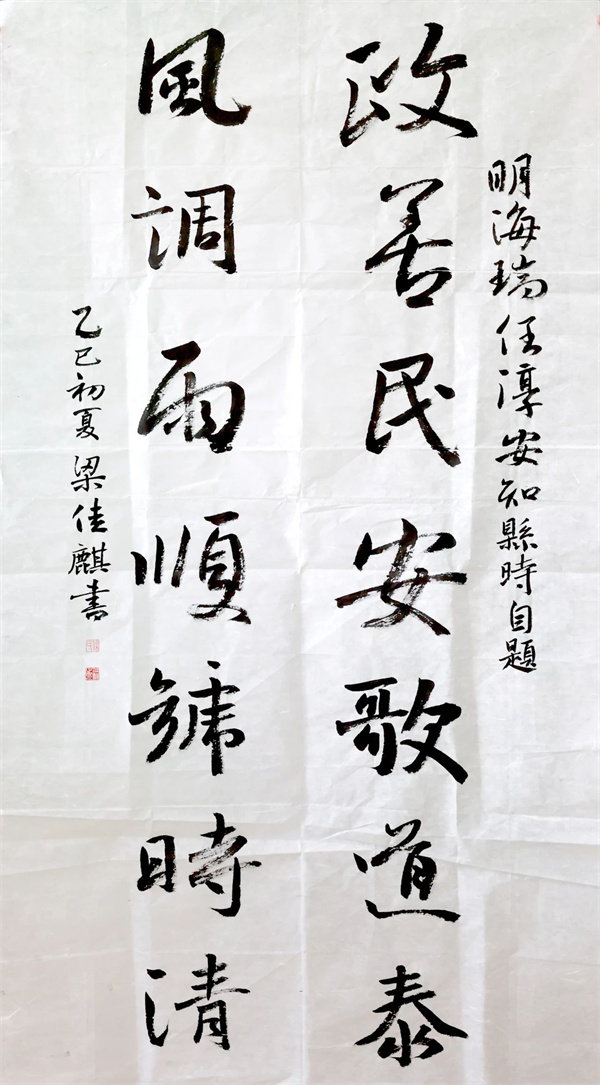 明海瑞任淳安知縣時自題
政善民安歌道泰
風調雨順號時清
乙巳初夏梁佳麒書